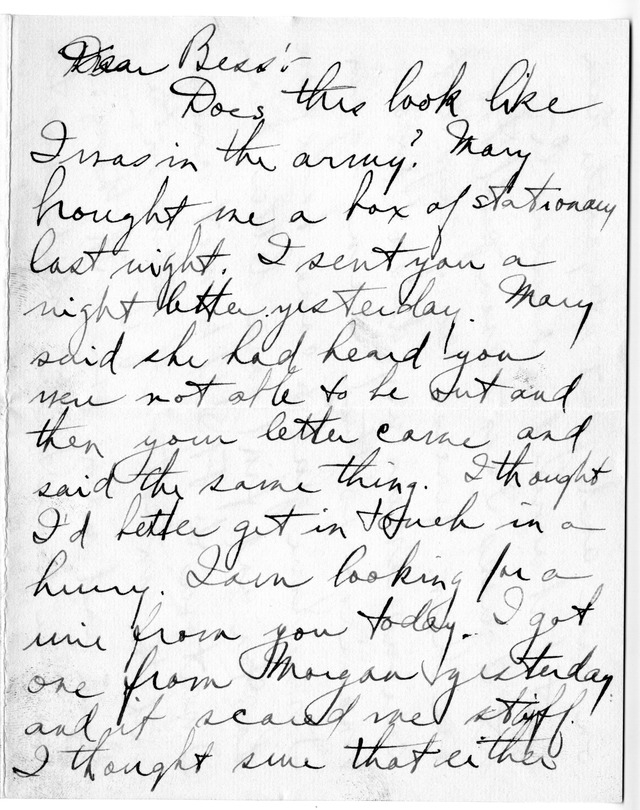 Dear Bess:-
Does this look like
I was in the army? Mary
brought me a box of stationary
last night. I sent you a
night letter yesterday. Mary
said she had heard you
were not able to be out and
then your letter came and
said the same thing. I thought
I'd better get in touch in a
hurry. I am looking for a
wire from you today. I got
one from Morgan yesterday
and it scared me stiff.
I thought sure that either